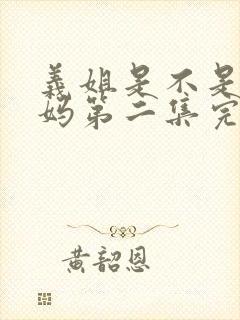 义姐是不是
妈第二集完
黄韶恩